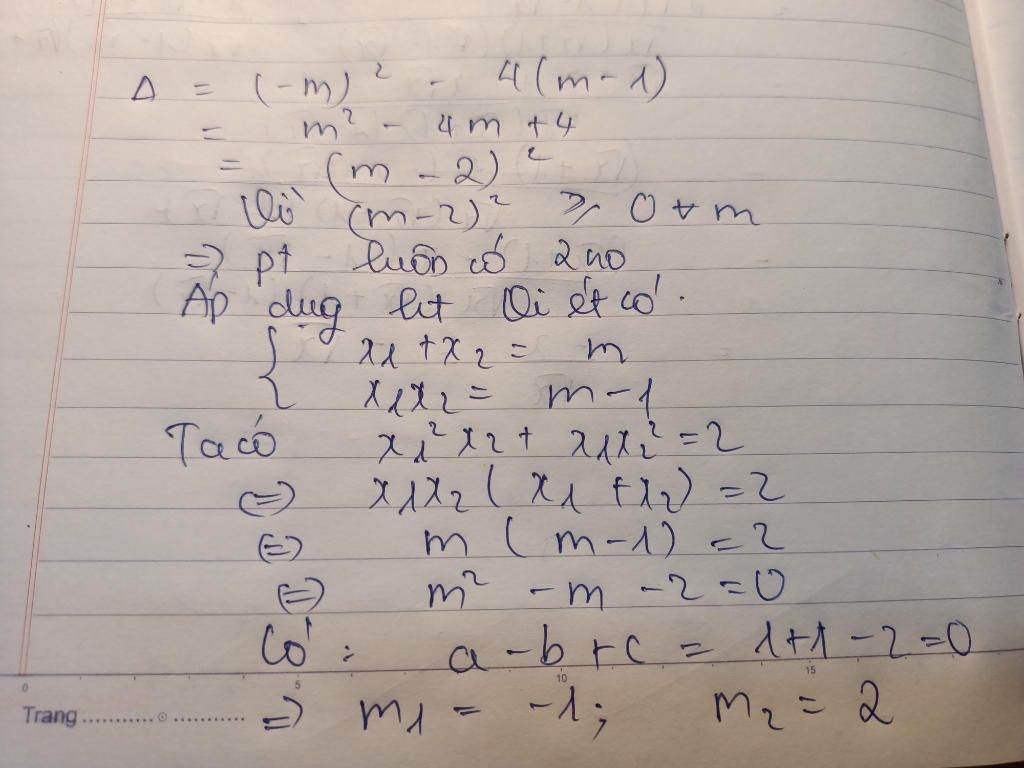 Δ = (-m)² - 4(m-1)
= m² - 4m + 4
= (m - 2)²
Vì (m-2)² ≥ 0 ∀ m
=> pt luôn có 2 no
Áp dug hlt Vi ét có.
{ x₁ + x₂ = m
x₁x₂ = m-1
Ta có x₁²x₂ + x₁x₂² = 2
(=) x₁x₂ ( x₁ + x₂) = 2
(=) m ( m-1) = 2
(=) m² - m - 2 = 0
Có : a - b + c = 1+1-2=0
0 5 10 15
Trang
=> m₁ = -1; m₂ = 2